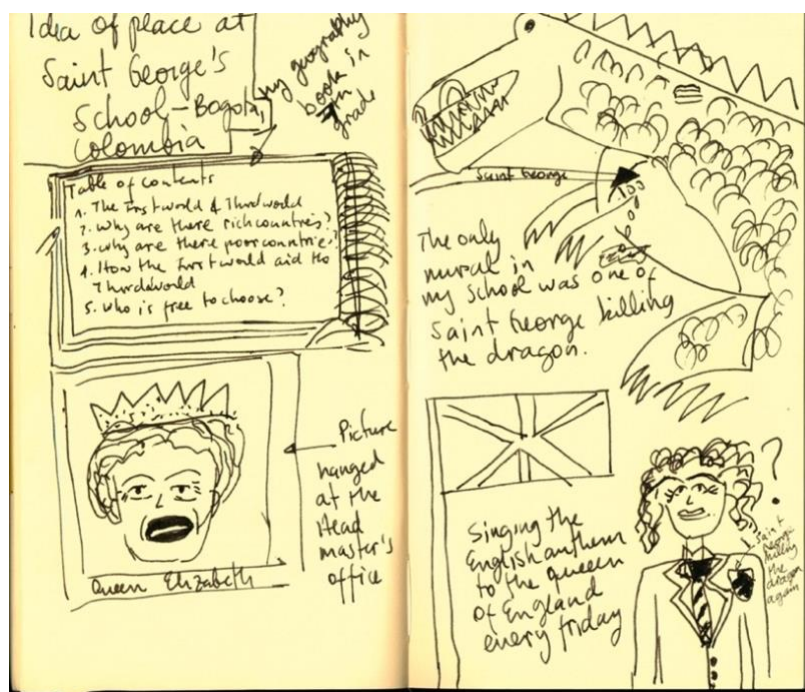 Idea of place at
Saint George's
School-Bogota,
Colombia
my geography
book in
7th
grade
Table of contents
1. The First world & Third world
2. Why are there rich countries?
3. why are there poor countries?
4. How the First world aid the
Third world
5. Who is free to choose?
Picture
hanged
at the
Head
master's
office
Queen Elizabeth
Saint George
The only
mural in
my school was one of
Saint George killing
the dragon.
Singing the
English anthem
to the queen
of England
every friday
?
Saint
George
killing
the
dragon
again